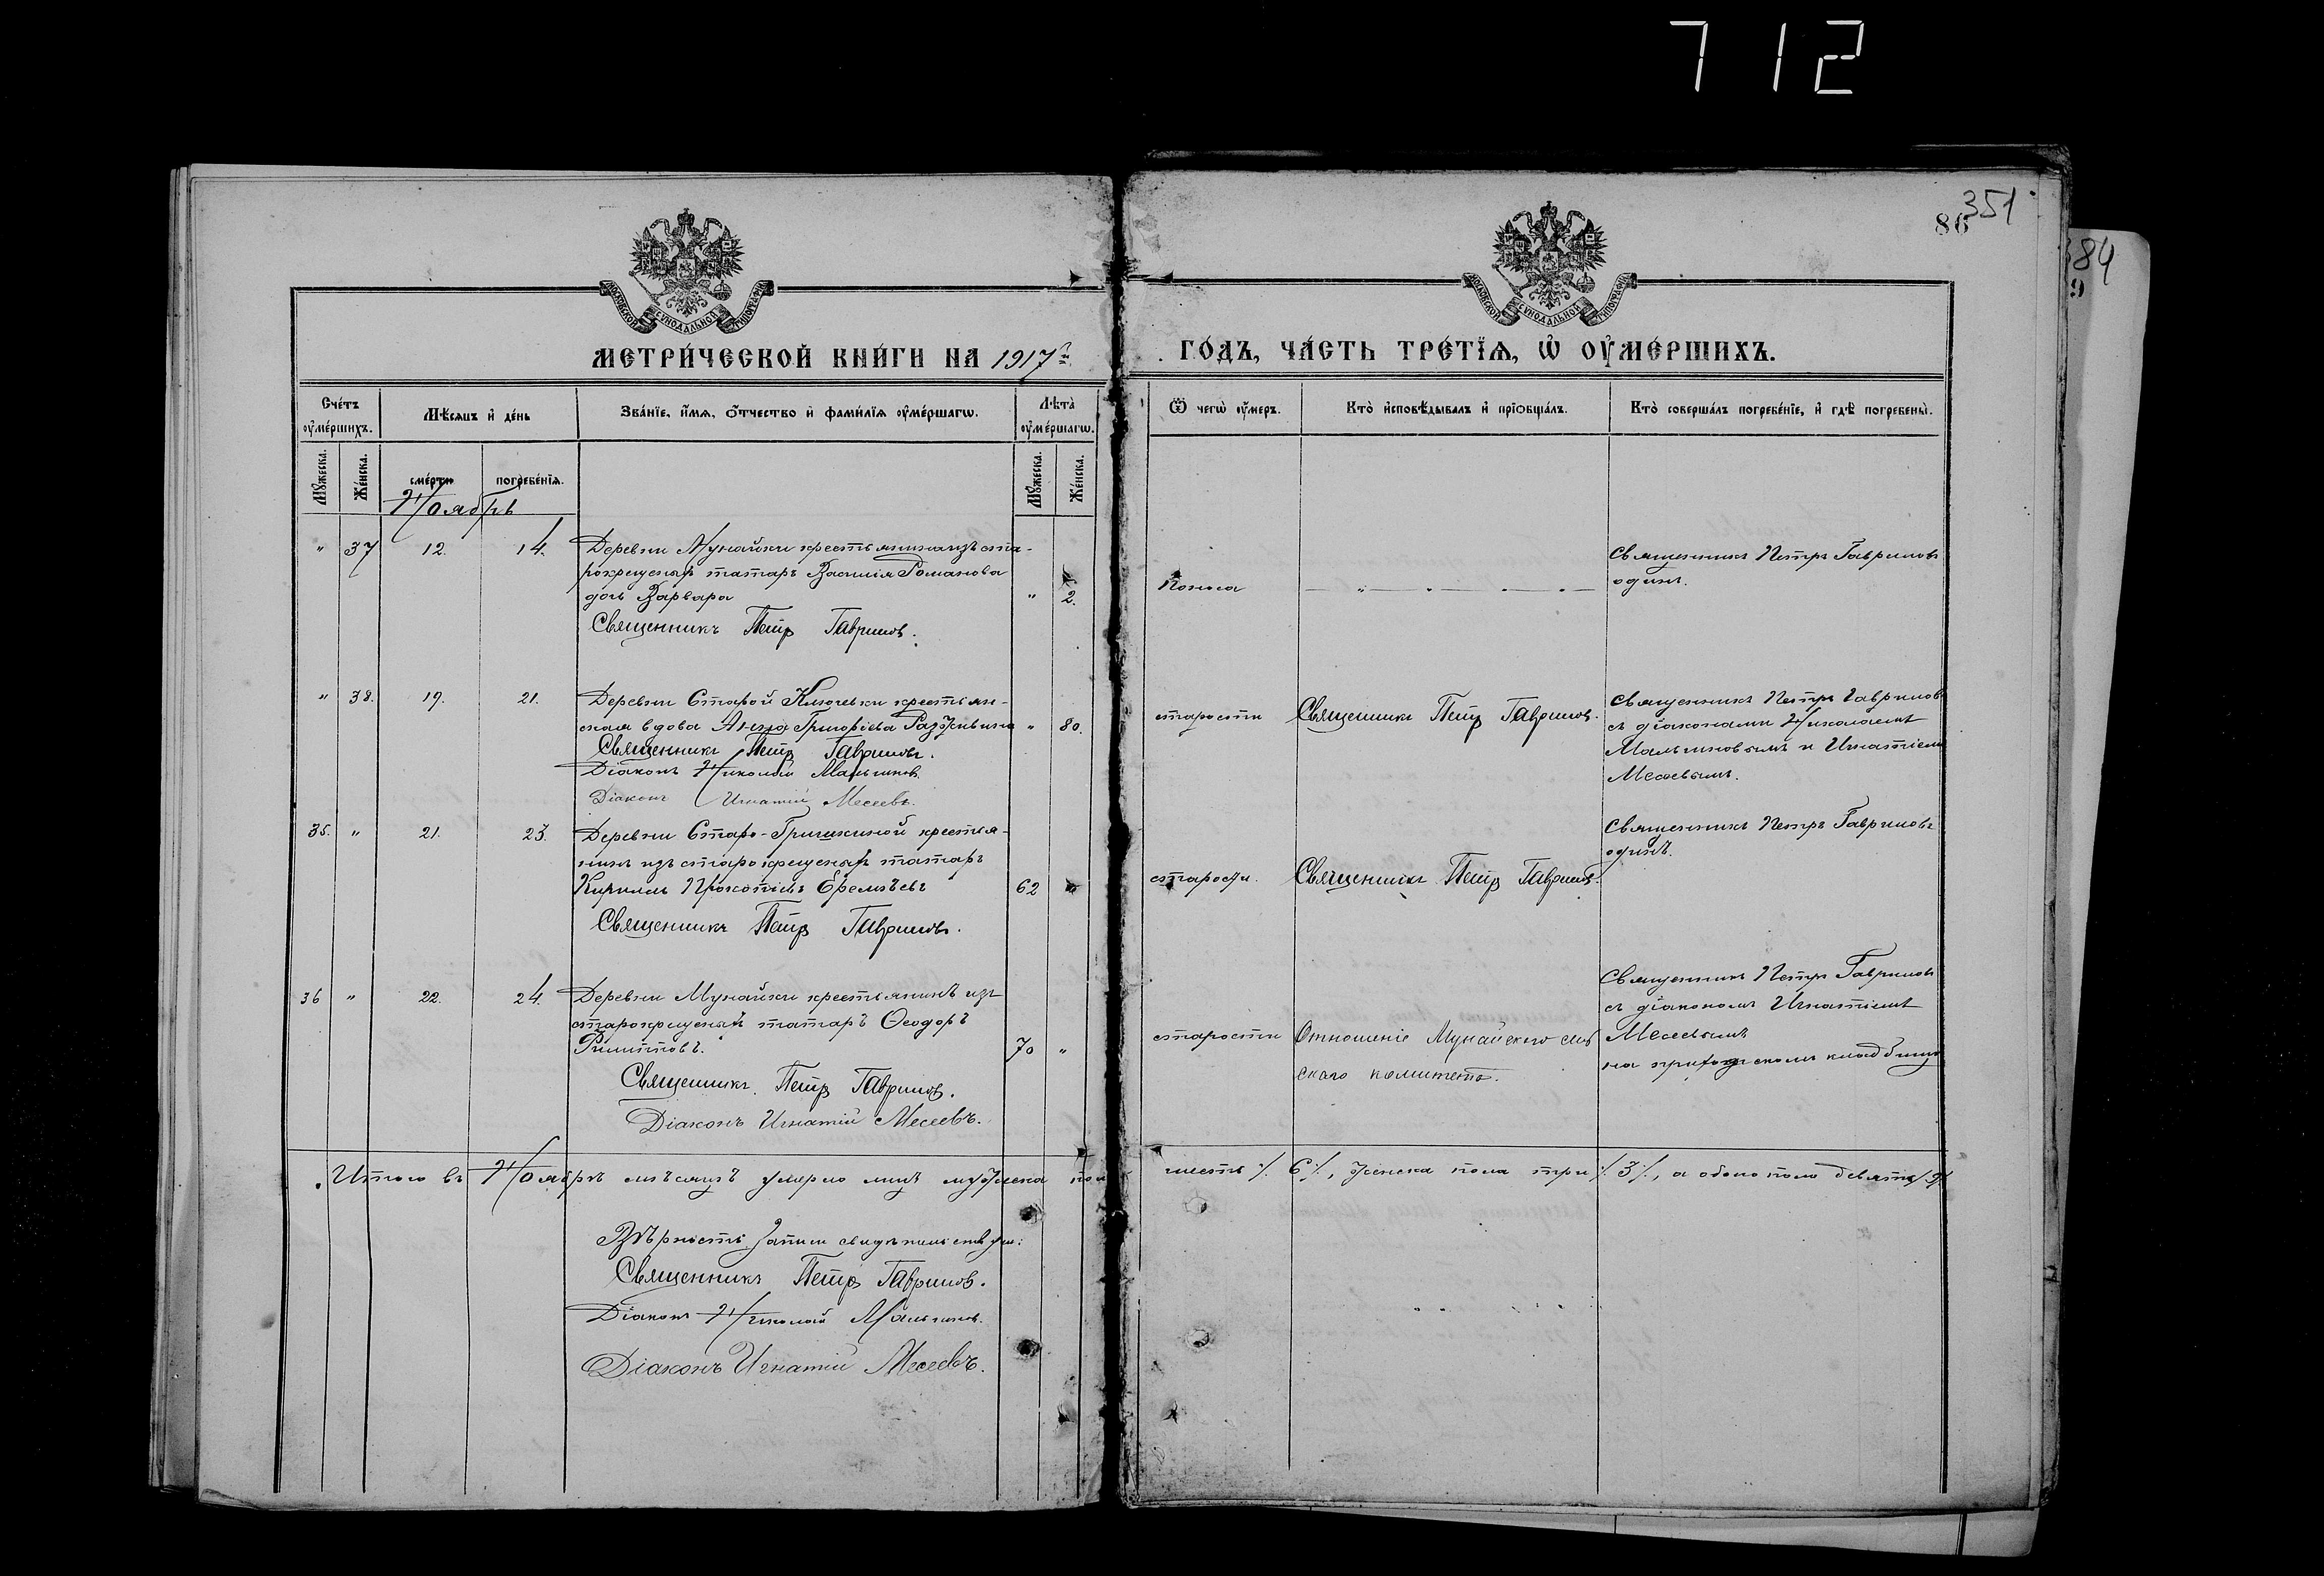 712
351
86
384
9
МОСКОВСКОЙ СѴНОДАЛЬНОЙ ТИПОГРАФІИ
МОСКОВСКОЙ СѴНОДАЛЬНОЙ ТИПОГРАФІИ
МЕТРИ́ЧЕСКОЙ КНИ́ГИ НА 1917 й
ГО́ДЪ, ЧА́СТЬ ТРЕ́ТЇѦ, Ѡ҆ ОУ҆МЕ́РШИХЪ.
Сче́тъ оу҆ме́ршихъ.
Мѣ́сѧцъ и҆ де́нь
Зва́нїе, и҆́мѧ, ѻ҆́тчество и҆ фами́лїѧ оу҆ме́ршагѡ.
Лѣ́та̀ оу҆ме́ршагѡ.
Ѿ чегѡ̀ оу҆́меръ.
Кто̀ и҆сповѣ́дывалъ и҆ прїѡбща́лъ.
Кто̀ соверша́лъ погребе́нїе, и҆ гдѣ̀ погребены̀.
Мꙋ́жеска.
Же́нска.
сме́рти
погребе́нїѧ.
Мꙋ́жеска.
Же́нска.
Ноябрь
" 37 12. 14. Деревни Мунайки крестьянина изъ ста-
рокрещеныхъ татаръ Василія Романова
дочь Варвара " 2.
Священникъ Петръ Гавриловъ.
Поноса
Священникъ Петръ Гавриловъ
одинъ.
" 38. 19. 21. Деревни Старой Ключевки крестьян-
ская вдова Анна Григорьева Разживина " 80.
Священникъ Петръ Гавриловъ.
Діаконъ Николай Мальшиковъ
Діаконъ Игнатій Месеевъ.
старости
Священникъ Петръ Гавриловъ.
Священникъ Петръ Гавриловъ
съ діаконами Николаемъ
и Игнатіемъ
Месеевымъ.
35. " 21. 23. Деревни Старо-Гришкиной крестья-
нинъ изъ старокрещеныхъ татаръ
Кириллъ Прокопіевъ Еремѣевъ 62 "
Священникъ Петръ Гавриловъ.
старости.
Священникъ Петръ Гавриловъ.
Священникъ Петръ Гавриловъ
одинъ.
36 " 22. 24. Деревни Мунайки крестьянинъ изъ
старокрещеныхъ татаръ Ѳеодоръ
Филипповъ. 70 "
Священникъ Петръ Гавриловъ.
Діаконъ Игнатій Месеевъ.
старости
Отношеніе Мунайскаго сель
скаго комитета.
Священникъ Петръ Гавриловъ
съ діакономъ Игнатіемъ
Месеевымъ
на приходскомъ кладбищѣ
Итого въ Ноябрѣ мѣсяцѣ умерло лицъ мужеска пола
шесть ·/. 6 ·/., женска пола три ·/. 3 ·/., а обоего пола девять ·/. 9 ·/.
Вѣрность записи свидѣтельствуемъ:
Священникъ Петръ Гавриловъ.
Діаконъ Николай
Діаконъ Игнатій Месеевъ.